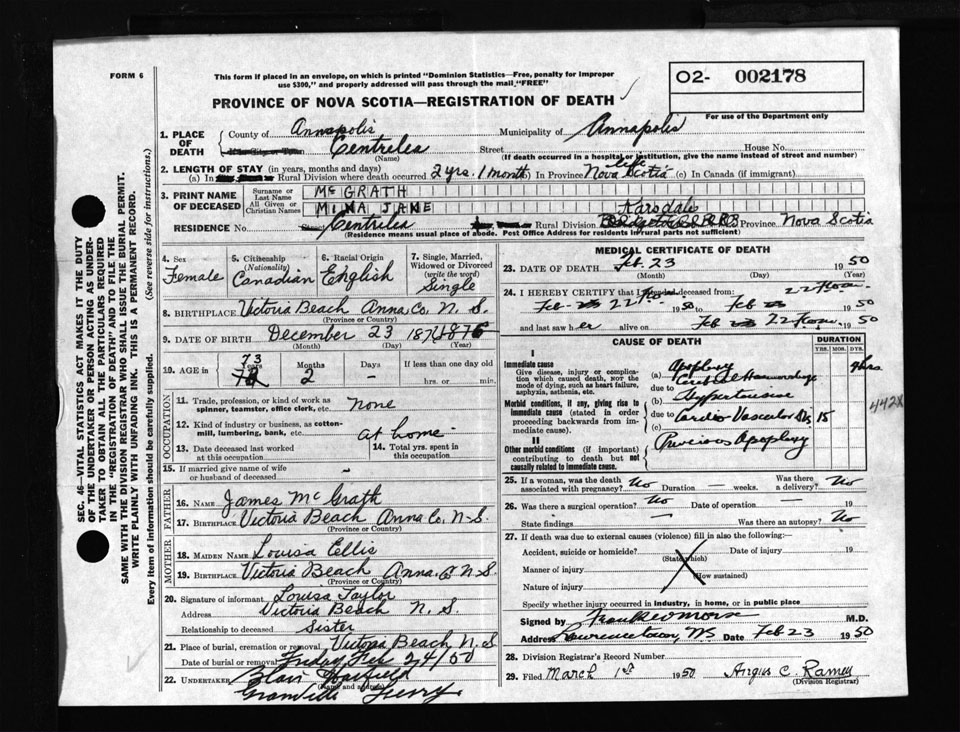 FORM 6
This form if placed in an envelope, on which is printed "Dominion Statistics—Free, penalty for improper
use $300," and properly addressed will pass through the mail "FREE"
PROVINCE OF NOVA SCOTIA—REGISTRATION OF DEATH
O2- 002178
For use of the Department only
SEC. 46—VITAL STATISTICS ACT MAKES IT THE DUTY
OF THE UNDERTAKER OR PERSON ACTING AS UNDER-
TAKER TO OBTAIN ALL THE PARTICULARS REQUIRED
IN THE "REGISTRATION OF DEATH" AND TO FILE THE
SAME WITH THE DIVISION REGISTRAR WHO SHALL ISSUE THE BURIAL PERMIT.
WRITE PLAINLY WITH UNFADING INK. THIS IS A PERMANENT RECORD.
Every item of information should be carefully supplied. (See reverse side for instructions.)
1. PLACE OF DEATH
County of Annapolis Municipality of Annapolis
Centrelea Street House No.
(Name) (If death occurred in a hospital or institution, give the name instead of street and number)
2. LENGTH OF STAY (in years, months and days)
(a) In Rural Division where death occurred 2 yrs. 1 month In Province life Nova Scotia (c) In Canada (if immigrant)
3. PRINT NAME OF DECEASED
Surname or Last Name McGRATH
All Given or Christian Names MINA JANE
Karsdale
RESIDENCE No. Street Centrelea Rural Division Province Nova Scotia
(Residence means usual place of abode. Post Office Address for residents in rural parts not sufficient)
4. Sex Female
5. Citizenship (Nationality) Canadian
6. Racial Origin English
7. Single, Married, Widowed or Divorced (write the word) Single
8. BIRTHPLACE Victoria Beach Anna Co. N. S.
(Province or Country)
9. DATE OF BIRTH December 23 1876
(Month) (Day) (Year)
10. AGE IN Years 73 Months 2 Days - If less than one day old
hrs. or min.
OCCUPATION
11. Trade, profession or kind of work as
spinner, teamster, office clerk, etc. None
12. Kind of industry or business, as cotton-
mill, lumbering, bank, etc. at home
13. Date deceased last worked
at this occupation
14. Total yrs. spent in
this occupation
15. If married give name of wife
or husband of deceased -
FATHER
16. NAME James McGrath
17. BIRTHPLACE Victoria Beach Anna Co. N-S.
(Province or Country)
MOTHER
18. MAIDEN NAME Louisa Ellis
19. BIRTHPLACE Victoria Beach Anna. Co N-S
(Province or Country)
20. Signature of informant Louisa Taylor
Address Victoria Beach N. S.
Relationship to deceased Sister
21. Place of burial, cremation or removal Victoria Beach N. S
Date of burial or removal Friday Feb 24/50
22. UNDERTAKER Blair
(Name and address)
Granville Ferry
MEDICAL CERTIFICATE OF DEATH
23. DATE OF DEATH Feb. 23 1950
(Month) (Day) (Year)
24. I HEREBY CERTIFY that I attended deceased from:
Feb 22 1950 to Feb 22 1950
and last saw her alive on Feb 22 1950
CAUSE OF DEATH
DURATION
YRS. MOS. DYS.
I
Immediate cause
Give disease, injury or complica-
tion which caused death, NOT the
mode of dying, such as heart failure,
asphyxia, asthenia, etc.
Morbid conditions, if any, giving rise to
immediate cause (stated in order
proceeding backwards from im-
mediate cause).
II
Other morbid conditions (if important)
contributing to death but not
causally related to immediate cause.
(a) Apoplexy 9 hrs
Cerebral Haemorrhage
due to
(b) Hypertensive
due to Cardio Vascular Dis 15
(c)
Previous Apoplexy
442X
25. If a woman, was the death
associated with pregnancy? No Duration - weeks. Was there
a delivery? No
26. Was there a surgical operation? No Date of operation 19
State findings Was there an autopsy? No
27. If death was due to external causes (violence) fill in also the following:—
Accident, suicide or homicide? Date of injury 19
(State which)
Manner of injury
(How sustained)
Nature of injury
Specify whether injury occurred in industry, in home, or in public place
Signed by Frank R Morse M.D.
Address Lawrencetown, NS Date Feb 23 1950
28. Division Registrar's Record Number
29. Filed March 1st 1950 Angus C. Ramey
(Division Registrar)